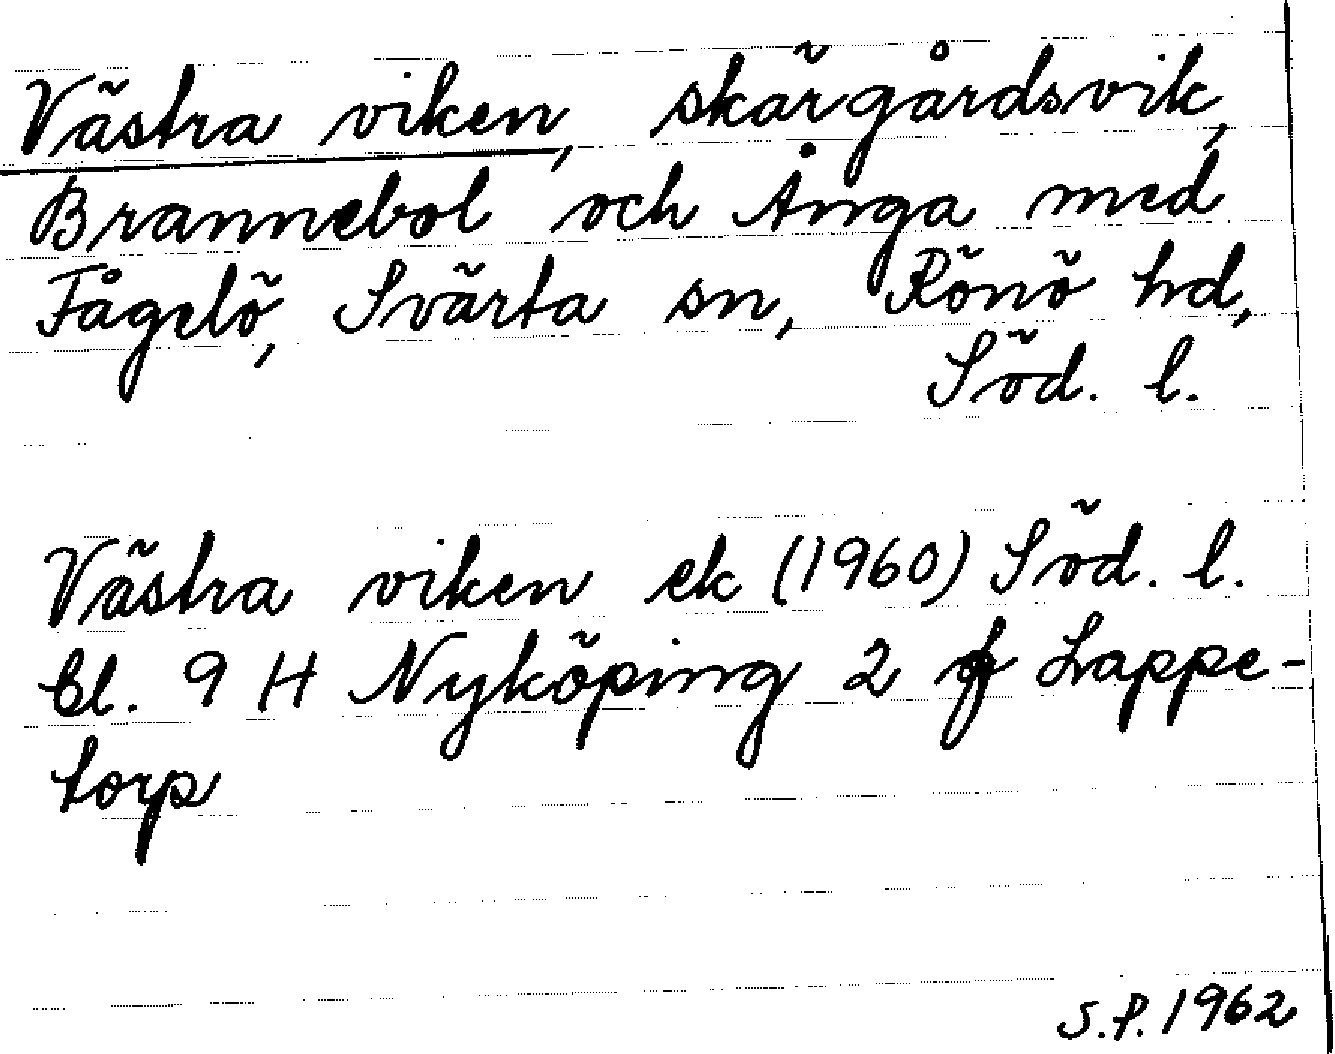 Västra viken, skärgårdsvik,
Brannebol och Ånga med
Fågelö, Svärta sn, Rönö hd,
Söd. l.
Västra viken ek (1960) Söd. l.
bl. 9 H Nyköping 2 f Lappe-
torp
S.P. 1962